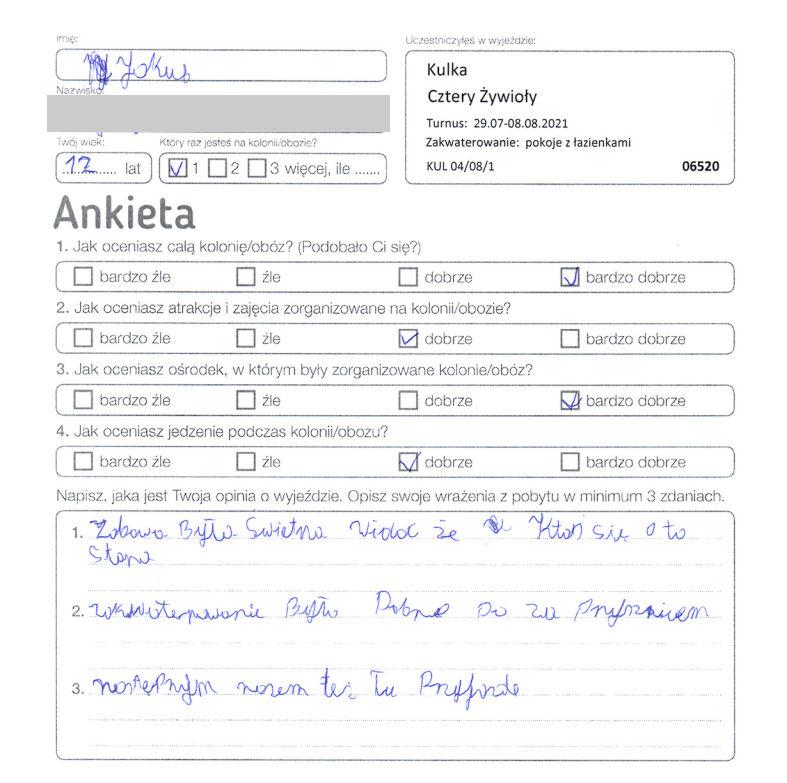 Imię:
Jakub
Uczestniczyłeś w wyjeździe:
Kulka
Cztery Żywioły
Turnus: 29.07-08.08.2021
Zakwaterowanie: pokoje z łazienkami
KUL 04/08/1 06520
Nazwisko:
Twój wiek:
12 lat
Który raz jesteś na kolonii/obozie?
1 2 3 więcej, ile .......
Ankieta
1. Jak oceniasz całą kolonię/obóz? (Podobało Ci się?)
bardzo źle źle dobrze bardzo dobrze
2. Jak oceniasz atrakcje i zajęcia zorganizowane na kolonii/obozie?
bardzo źle źle dobrze bardzo dobrze
3. Jak oceniasz ośrodek, w którym były zorganizowane kolonie/obóz?
bardzo źle źle dobrze bardzo dobrze
4. Jak oceniasz jedzenie podczas kolonii/obozu?
bardzo źle źle dobrze bardzo dobrze
Napisz, jaka jest Twoja opinia o wyjeździe. Opisz swoje wrażenia z pobytu w minimum 3 zdaniach.
1. Zabawa Była Świetna Widać że Ktoś się o to
stara
2. Było Dobre Po za Prysznicem
3. nastęPnym razem też Tu Przyjade